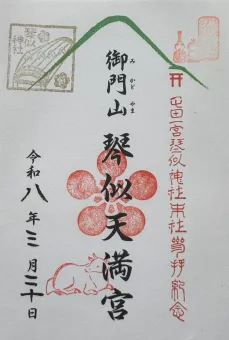 琴似
神社
屯田一宮琴似神社末社参拝紀念
御門山
みかどやま
琴似天満宮
令和八年三月二十日